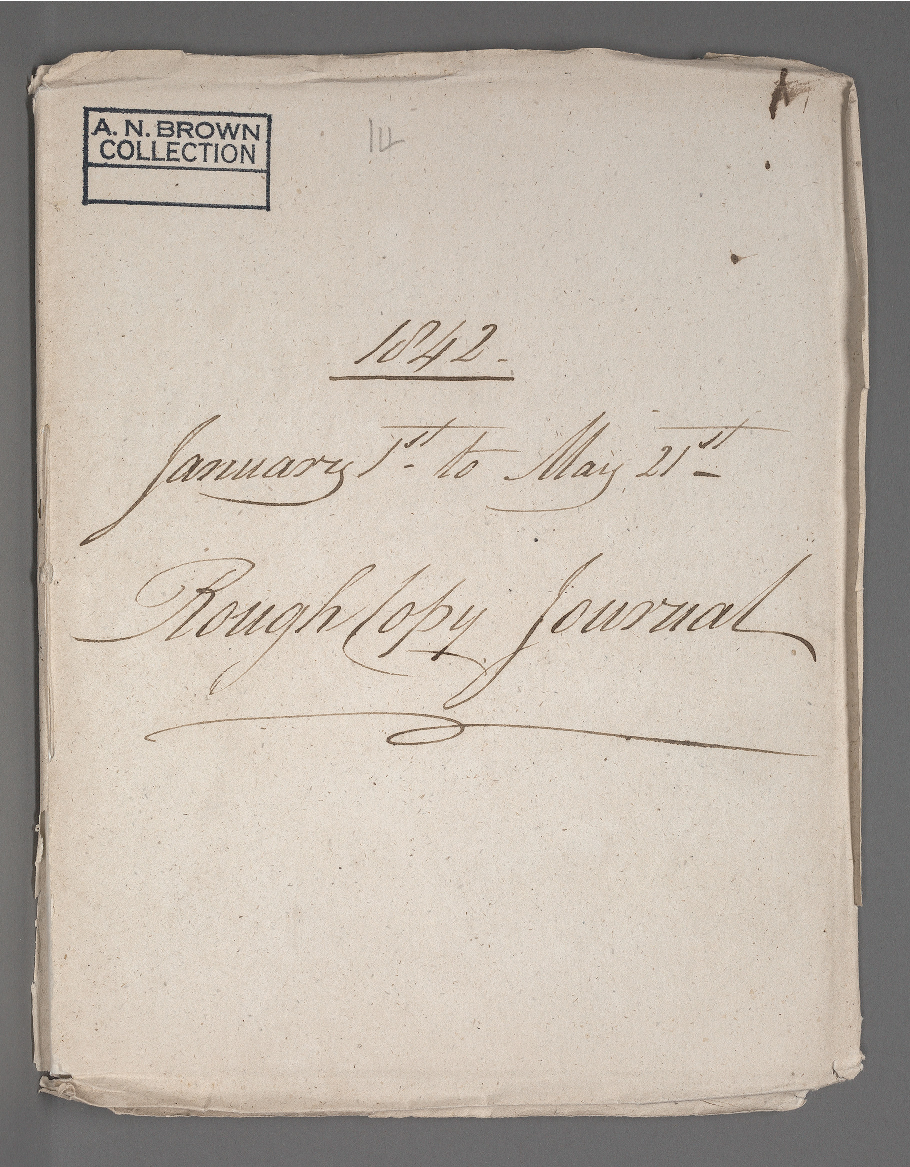 A. N. BROWN
COLLECTION
14
1842.
January 1st to May 21st
Rough Copy Journal